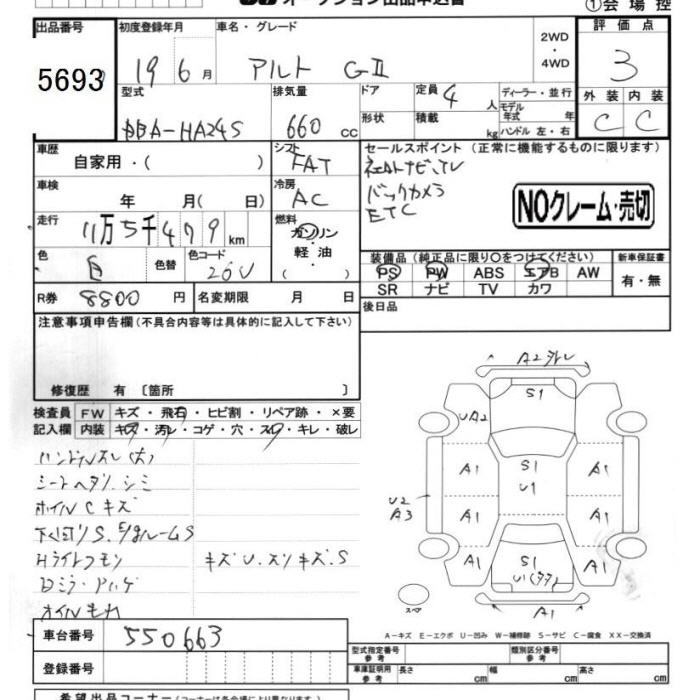 オークション出品申込書
①会場控
出品番号 初度登録年月 車名・グレード 2WD ・ 4WD 評価点
5693 19 6月 アルト GⅡ 3
型式 排気量 ドア 定員 4人 ディーラー・並行 外装 内装
DBA-HA24S 660 cc 形状 積載 kg モデル年式 年 C C
ハンドル 左・右
車歴 シフト セールスポイント (正常に機能するものに限ります)
自家用・( ) FAT 社外ナビ、TV
車検 冷房 バックカメラ
年 月( 日) AC ETC
NOクレーム・売切
走行 11万5千479km 燃料 ガソリン
軽油
( )
色 色替 色コード 装備品 (純正品に限り○をつけてください) 新車保証書
白 26U PS PW ABS エアB AW 有・無
SR ナビ TV カワ
R券 8800円 名変期限 月 日 後日品
注意事項申告欄 (不具合内容等は具体的に記入して下さい)
修復歴 有 〔箇所 〕
検査員 FW キズ・飛石・ヒビ割・リペア跡・×要
記入欄 内装 キズ・汚レ・コゲ・穴・スレ・キレ・破レ
ハンドルスレ(大)
シートヘタリ、シミ
ホイルC キズ
下回りS. E/gルームS
Hライトクモリ キズU. スリキズ. S
Dミラー ハゲ
オイルもれ
A2 スレ
S1
UA2
A1 S1 A1
U1
U2
A3
A1 A1
A1 S1 A1
U1
スペア A1
A-キズ E-エクボ U-凹み W-補修跡 S-サビ C-腐食 XX-交換済
車台番号 550663
登録番号
型式指定番号 参考 類別区分番号 参考
車庫証明用 参考 長さ cm 幅 cm 高さ cm
希望出品コーナー (コーナーは各会場により異なります)